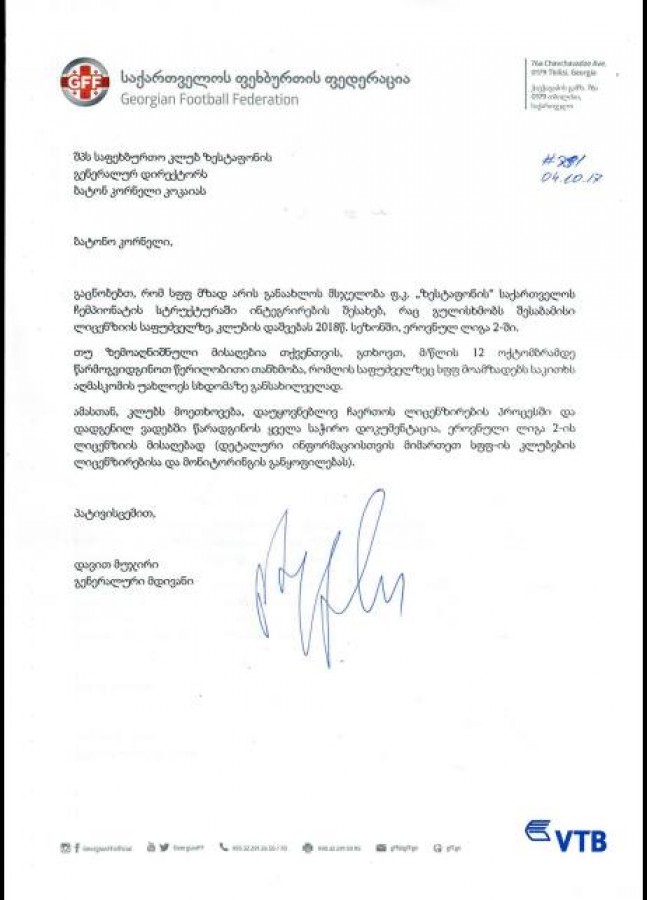 GFF
საქართველოს ფეხბურთის ფედერაცია
Georgian Football Federation
76a Chavchavadze Ave.
0179 Tbilisi, Georgia
ჭავჭავაძის გამზ. 76ა
0179 თბილისი,
საქართველო
შპს საფეხბურთო კლუბ ზესტაფონის
გენერალურ დირექტორს
ბატონ კორნელი კოკაიას
04.10.17
ბატონო კორნელი,
გაცნობებთ, რომ სფფ მზად არის განაახლოს მსჯელობა ფ.კ. „ზესტაფონის" საქართველოს
ჩემპიონატის სტრუქტურაში ინტეგრირების შესახებ, რაც გულისხმობს შესაბამისი
ლიცენზიის საფუძველზე, კლუბის დაშვებას 2018წ. სეზონში, ეროვნულ ლიგა 2-ში.
თუ ზემოაღნიშნული მისაღებია თქვენთვის, გთხოვთ, მ/წლის 12 ოქტომბრამდე
წარმოგვიდგინოთ წერილობითი თანხმობა, რომლის საფუძველზეც სფფ მოამზადებს საკითხს
აღმასკომის უახლოეს სხდომაზე განსახილველად.
ამასთან, კლუბს მოეთხოვება, დაუყოვნებლივ ჩაერთოს ლიცენზირების პროცესში და
დადგენილ ვადებში წარადგინოს ყველა საჭირო დოკუმენტაცია, ეროვნული ლიგა 2-ის
ლიცენზიის მისაღებად (დეტალური ინფორმაციისთვის მიმართეთ სფფ-ის კლუბების
ლიცენზირებისა და მონიტორინგის განყოფილებას).
პატივისცემით,
დავით მუჯირი
გენერალური მდივანი
VTB